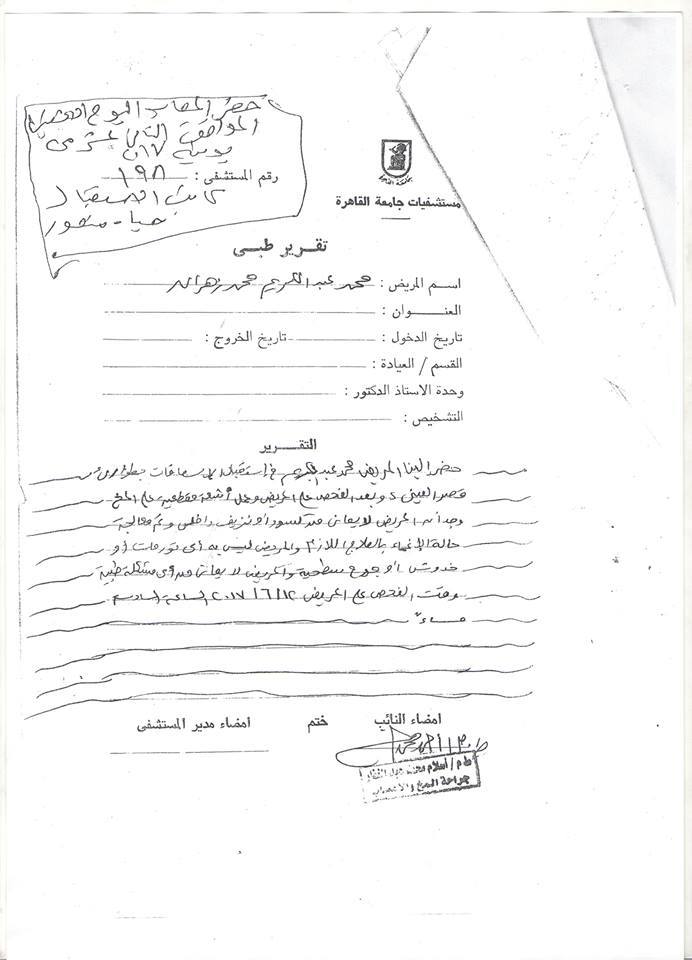 حضر المصاب اليوم
الموافق الثاني عشر من
يونيه ٢٠١٧
رقم المستشفى : ١٩٨
جامعة القاهرة
مستشفيات جامعة القاهرة
تقرير طبى
اسم المريض : محمد عبد الكريم محمد زهران
العنوان :
تاريخ الدخول : تاريخ الخروج :
القسم / العيادة :
وحدة الاستاذ الدكتور :
التشخيص :
التقرير
حضر الينا المريض محمد عبد الكريم فى استقبال الاسعافات بطوارئ
قصر العينى وبعد الفحص على المريض وعمل أشعة مقطعية على المخ
وجد أن المريض لا يعانى من كسور أو نزيف داخلى وتم معالجة
حالة الإغماء بالعلاج اللازم والمريض ليس به أى تورمات أو
خدوش أو جروح سطحية والمريض لا يعانى من أى مشكلة طبية
وقت الفحص على المريض ٢٠١٧/٦/١٢ الساعة السادسة
مساءً
امضاء النائب ختم امضاء مدير المستشفى
ط.م/ أحمد محمد
ط.م/ اسلام محمد عبد الغفار
جراحة المخ والاعصاب